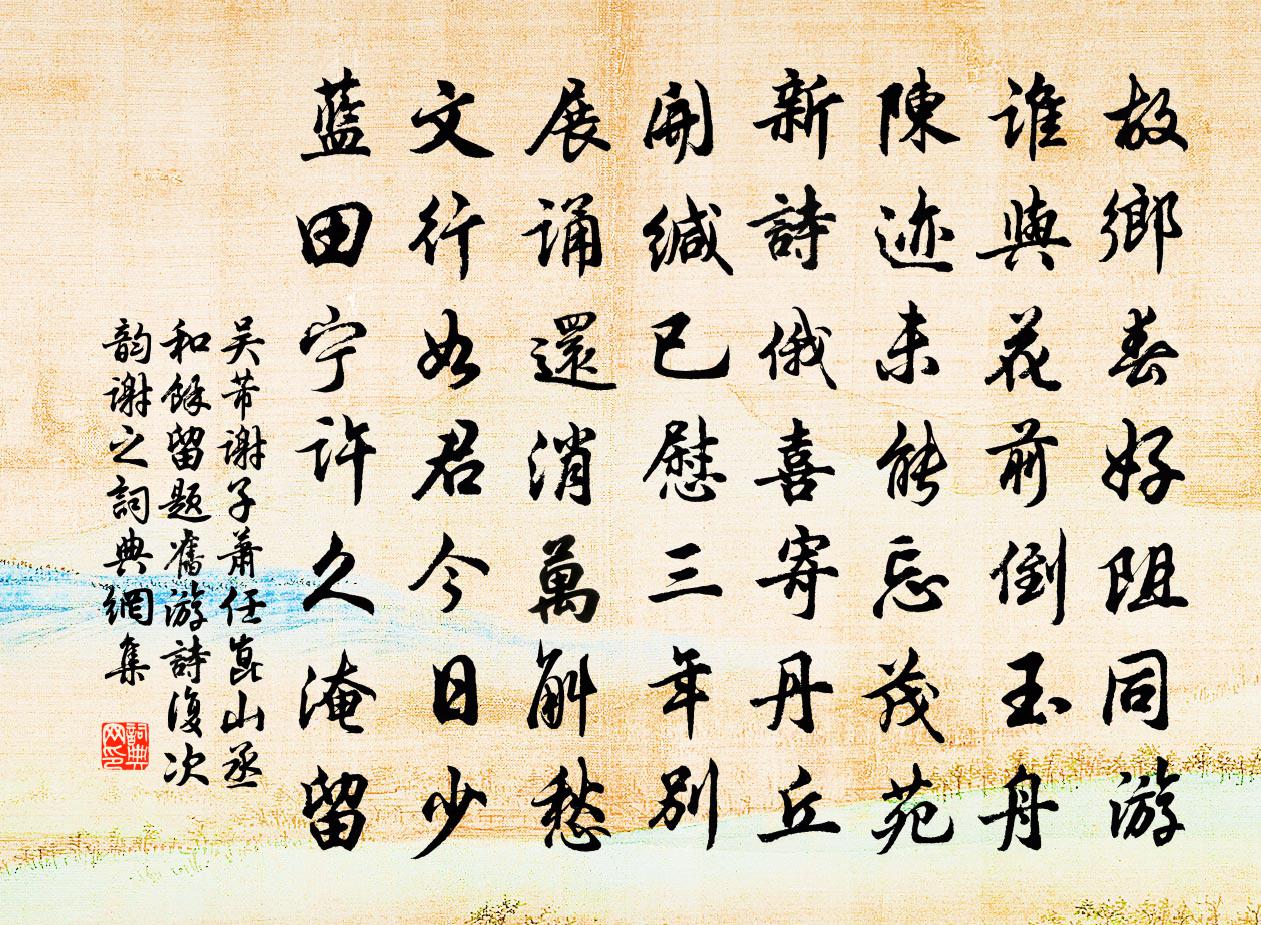 故鄉春好阻同游
誰與花前倒玉舟
陳迹未能忘茂苑
新詩俄喜寄丹丘
開緘已慰三年別
展誦還消萬斛愁
文行如君今日少
藍田宁許久淹留
吴芾謝子蕭任崑山丞
和餘留題舊游詩復次
韵謝之詞典網集
詞典
网印